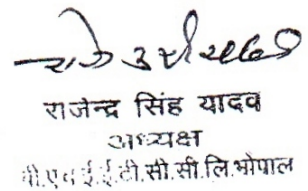 राजेन्द्र सिंह यादव
अध्यक्ष
बी.एच ई.ई.टी.सी.सी.लि.भोपाल